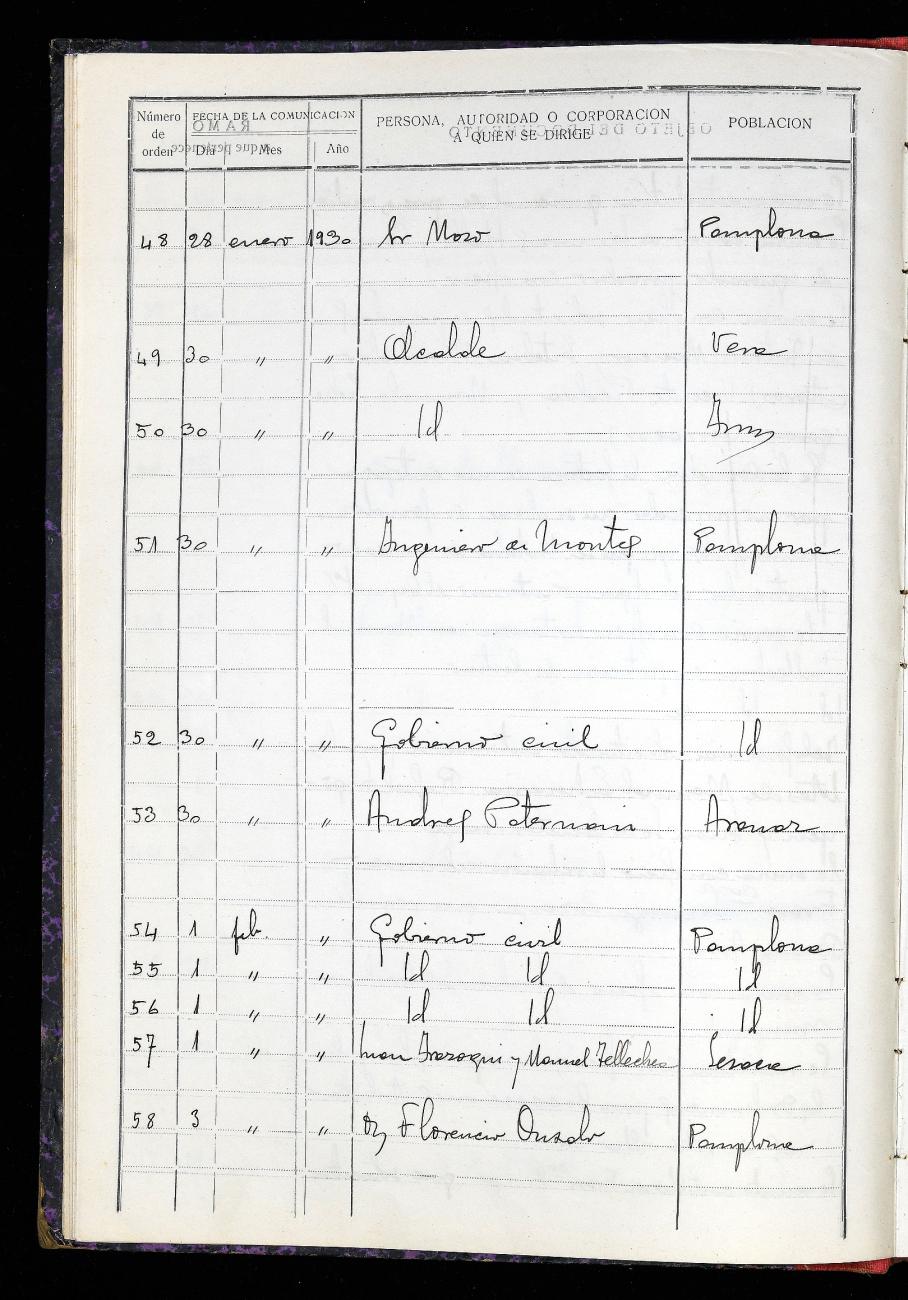 Número de orden FECHA DE LA COMUNICACION Día Mes Año PERSONA, AUTORIDAD O CORPORACION A QUIEN SE DIRIGE POBLACION
48 28 enero 1930 Sr Mozo Pamplona
49 30 " " Alcalde Vera
50 30 " " Id
51 30 " " Ingeniero de Montes Pamplona
52 30 " " Gobierno civil Id
53 30 " " Andres Paternain Aranaz
54 1 feb. " Gobierno civil Pamplona
55 1 " " Id Id Id
56 1 " " Id Id Id
57 1 " " Juan Irazoqui y Manuel Tellechea Lesaca
58 3 " " Florencio Pamplona